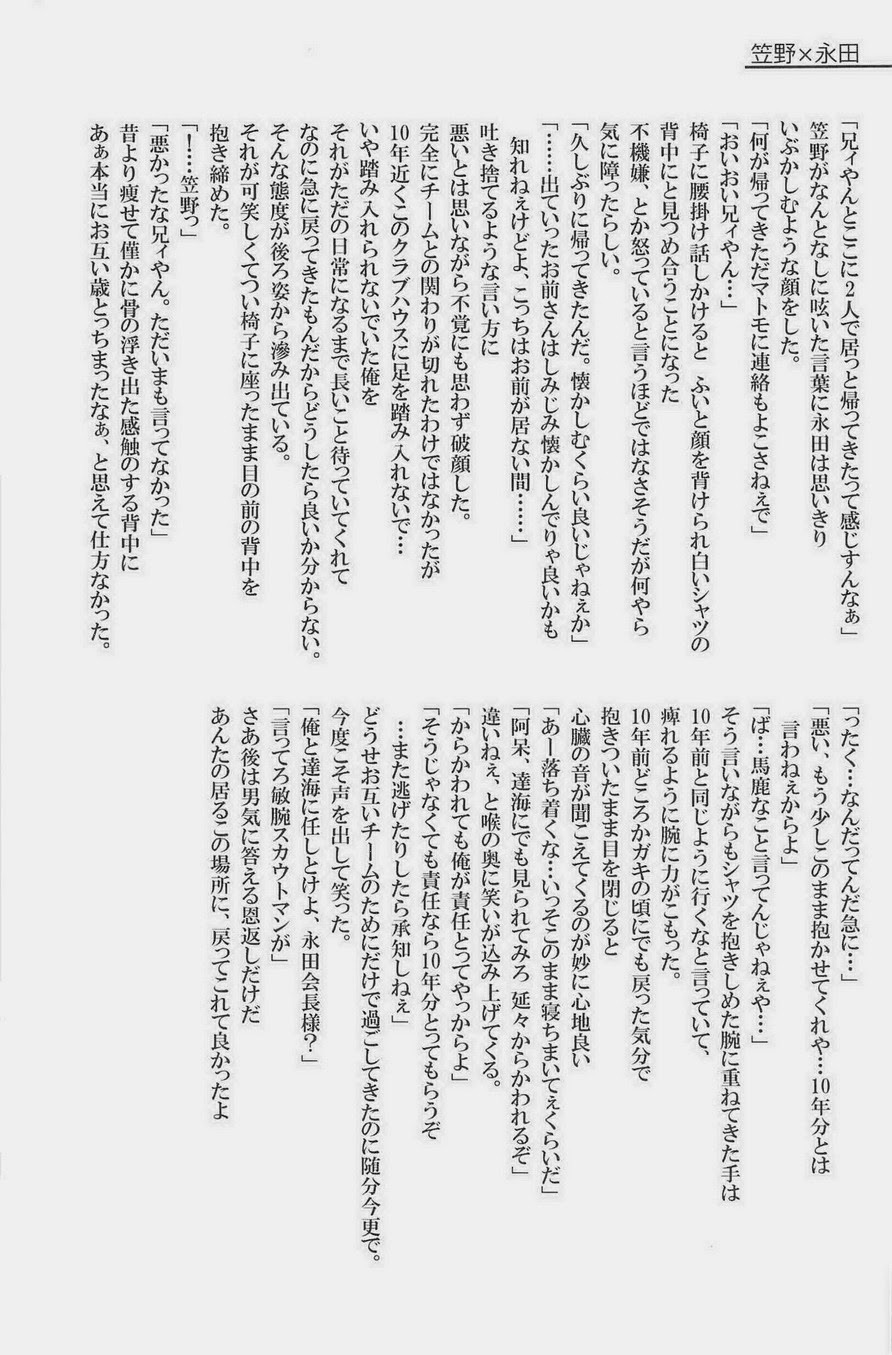 笠野×永田
「兄ィやんとここに2人で居っと帰ってきたって感じすんなぁ」
笠野がなんとなしに呟いた言葉に永田は思いきり
いぶかしむような顔をした。
「何が帰ってきただマトモに連絡もよこさねぇで」
「おいおい兄ィやん…」
椅子に腰掛け話しかけると　ふいと顔を背けられ白いシャツの
背中にと見つめ合うことになった
不機嫌、とか怒っていると言うほどではなさそうだが何やら
気に障ったらしい。
「久しぶりに帰ってきたんだ。懐かしむくらい良いじゃねぇか」
「……出ていったお前さんはしみじみ懐かしんでりゃ良いかも
知れねぇけどよ、こっちはお前が居ない間……」
吐き捨てるような言い方に
悪いとは思いながら不覚にも思わず破顔した。
完全にチームとの関わりが切れたわけではなかったが
10年近くこのクラブハウスに足を踏み入れないで…
いや踏み入れられないでいた俺を
それがただの日常になるまで長いこと待っていてくれて
なのに急に戻ってきたもんだからどうしたら良いか分からない。
そんな態度が後ろ姿から滲み出ている。
それが可笑しくてつい椅子に座ったまま目の前の背中を
抱き締めた。
「！…笠野っ」
「悪かったな兄ィやん。ただいまも言ってなかった」
昔より痩せて僅かに骨の浮き出た感触のする背中に
あぁ本当にお互い歳とっちまったなぁ、と思えて仕方なかった。
「ったく…なんだってんだ急に…」
「悪い、もう少しこのまま抱かせてくれや…10年分とは
言わねぇからよ」
「ば…馬鹿なこと言ってんじゃねぇや…」
そう言いながらもシャツを抱きしめた腕に重ねてきた手は
10年前と同じように行くなと言っていて、
痺れるように腕に力がこもった。
10年前どころかガキの頃にでも戻った気分で
抱きついたまま目を閉じると
心臓の音が聞こえてくるのが妙に心地良い
「あー落ち着くな…いっそこのまま寝ちまいてぇくらいだ」
「阿呆、達海にでも見られてみろ 延々からかわれるぞ」
違いねぇ、と喉の奥に笑いが込み上げてくる。
「からかわれても俺が責任とってやっからよ」
「そうじゃなくても責任なら10年分とってもらうぞ
…また逃げたりしたら承知しねぇ」
どうせお互いチームのためにだけで過ごしてきたのに随分今更で。
今度こそ声を出して笑った。
「俺と達海に任しとけよ、永田会長様？」
「言ってろ敏腕スカウトマンが」
さあ後は男気に答える恩返しだけだ
あんたの居るこの場所に、戻ってこれて良かったよ